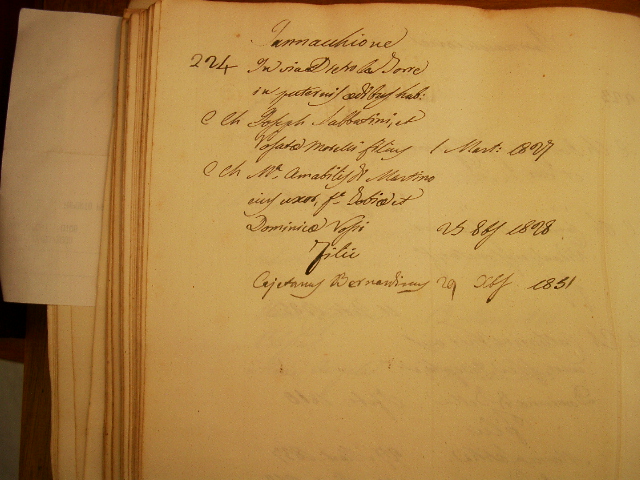 Iannacchione
224 In via Dietro la Torre
in paternis ædibus hab:
C Ch Joseph Sabbatini, et
Rosatæ Morelli filius 1 Mart: 1827
C Ch Mª Amabilis de Martino
eius uxor, fª Tobiæ et
Dominicæ Rossi 25 8bs 1828
Filii
Cajetanus Bernardinus 29 Xbs 1851